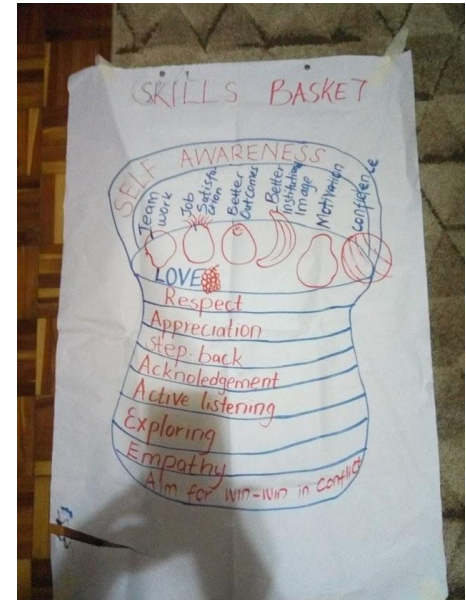 SKILLS BASKET
SELF AWARENESS
Team
work
Job
Satisfac
ction
Better
Outcomes
Better
institution
Image
Motivation
Conference
LOVE
Respect
Appreciation
Step-back
Acknoledgement
Active listening
Exploring
Empathy
Aim for win-win in Conflict